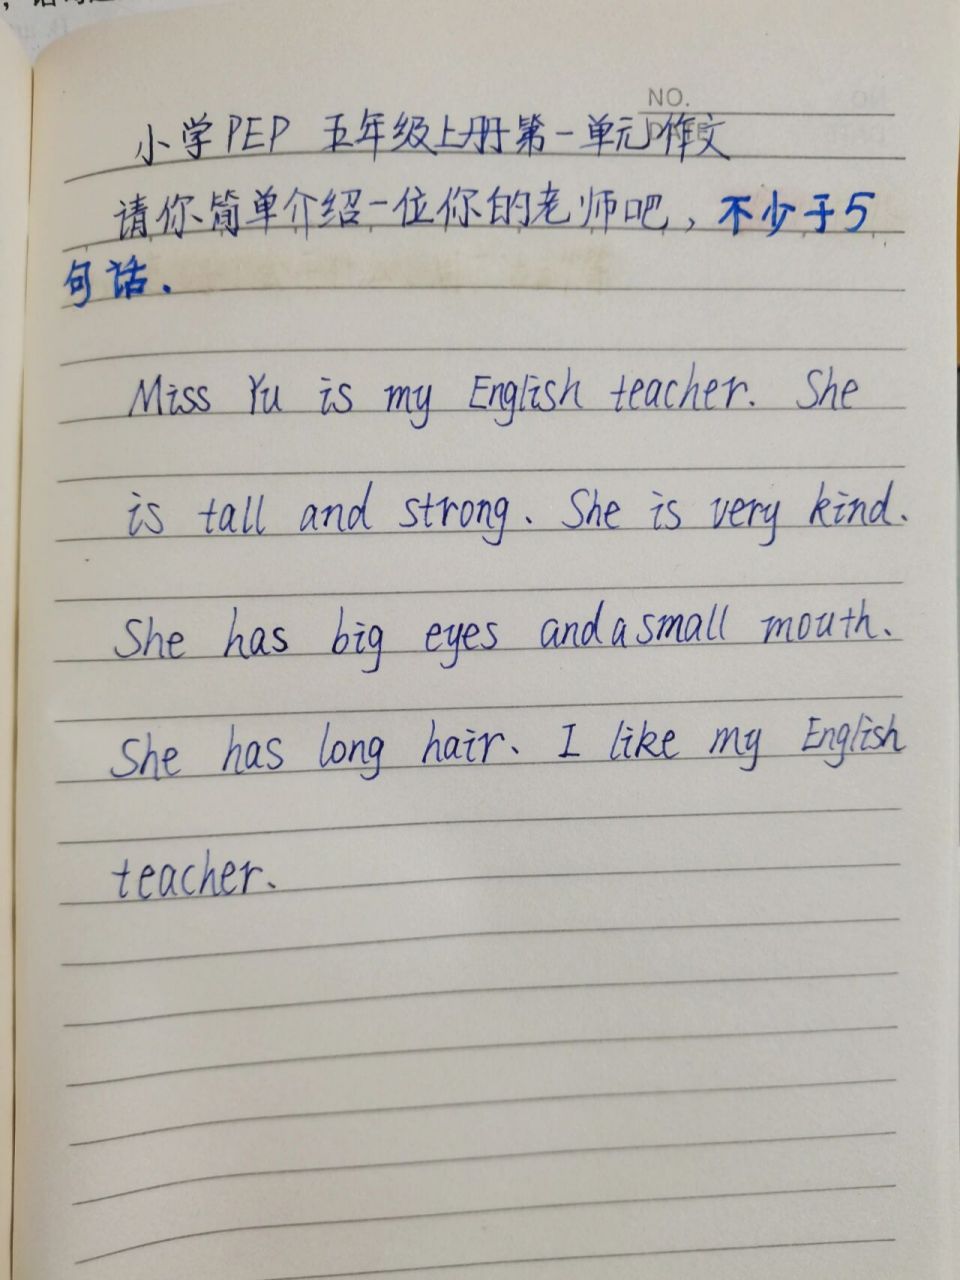 NO.
小学PEP 五年级上册第一单元作文
请你简单介绍一位你的老师吧，不少于5
句话.
Miss Yu is my English teacher. She
is tall and strong. She is very kind.
She has big eyes and a small mouth.
She has long hair. I like my English
teacher.